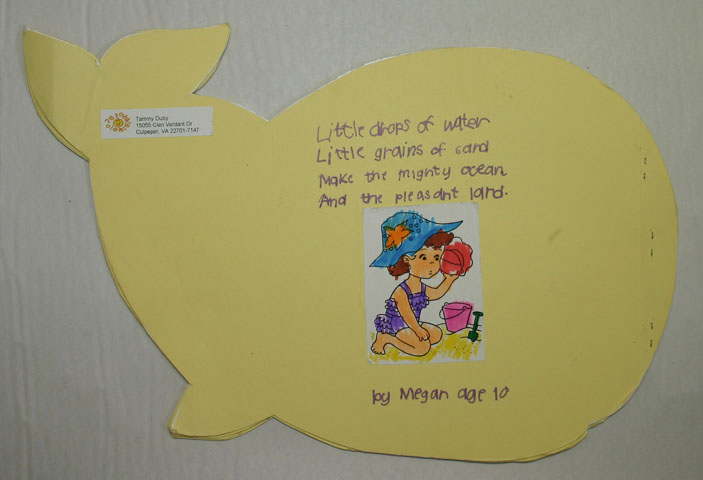 Tammy Duby
15055 Glen Verdant Dr
Culpeper, VA 22701-7147
Little drops of water
Little grains of sand
Make the mighty ocean
And the pleasant land.
by Megan age 10